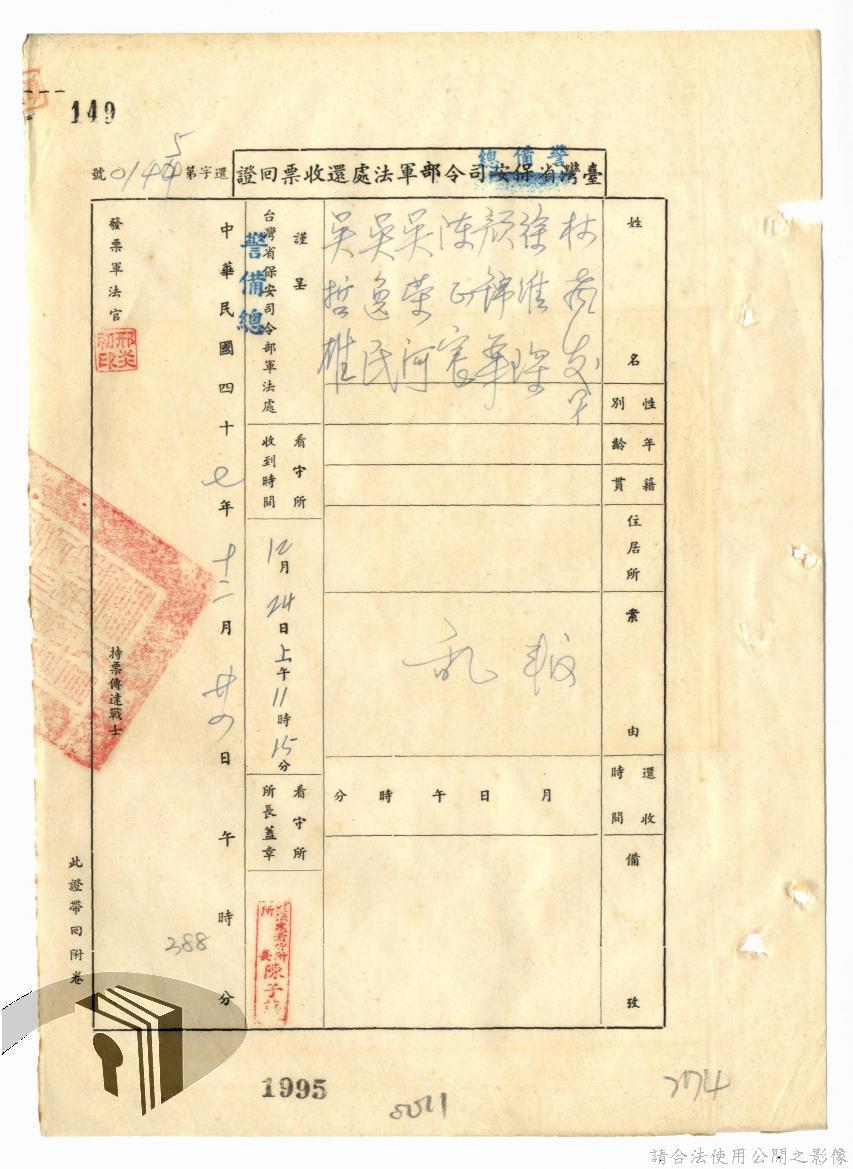 149
臺灣省保安司令部軍法處還收票回證
警備總
還字第0145號
姓名
林
徐淮琛
顏錦華
陳正宸
吳榮河
吳逸民
吳哲雄
性別
年齡
籍貫
住居所
案由
叛亂
還收時間
月日午時分
備攷
謹呈
台灣省保安司令部軍法處
警備總
看守所收到時間
12月24日上午11時15分
看守所所長蓋章
所長陳子
中華民國四十七年十二月廿四日午時分
發票軍法官
邢炎初印
持票傳達戰士
此證帶回附卷
388
1995
274
請合法使用公開之影像